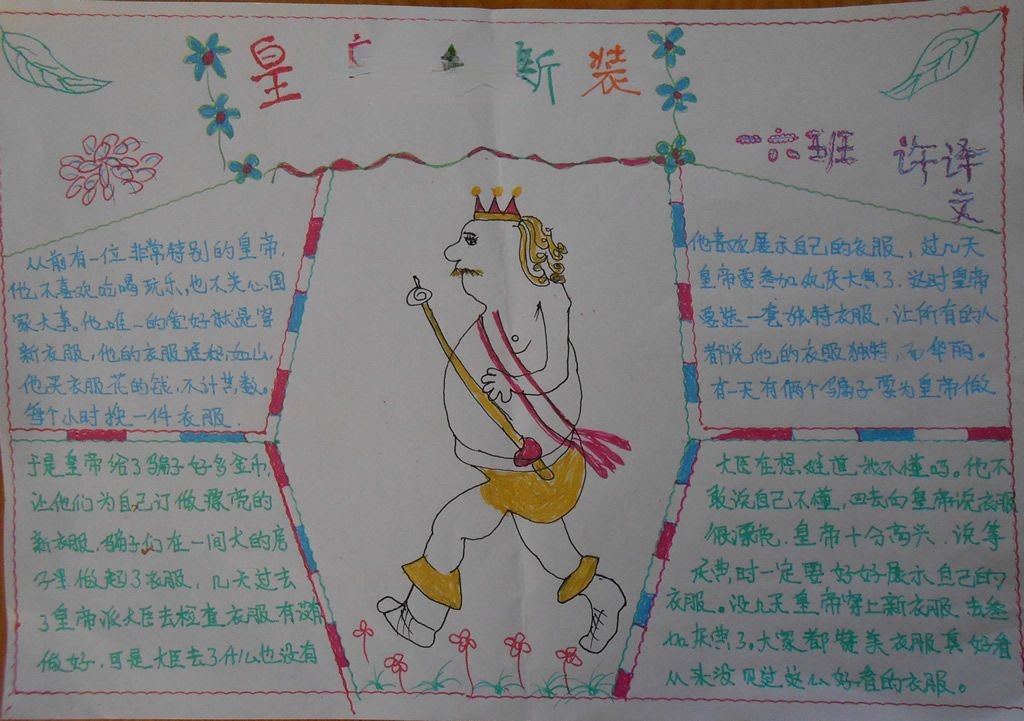 皇 新装
一六班 许译文
从前有一位非常特别的皇帝,
他不喜欢吃喝玩乐,也不关心国
家大事。他唯一的爱好就是穿
新衣服,他的衣服堆积如山,
他买衣服花的钱,不计其数。
每个小时换一件衣服.
他喜欢展示自己的衣服,过几天
皇帝要参加欢庆大典了.这时皇帝
要选一套独特衣服,让所有的人
都说他的衣服独特,而华丽。
有一天有俩个骗子要为皇帝做
于是皇帝给了骗子好多金币,
让他们为自己订做漂亮的
新衣服.骗子们在一间大的房
子里做起了衣服,几天过去
了皇帝派大臣去检查衣服有没有
做好,可是大臣去了什么也没有
大臣在想,难道我不懂吗。他不
敢说自己不懂,回去向皇帝说衣服
很漂亮,皇帝十分高兴,说等
庆典时一定要好好展示自己的
衣服。没几天皇帝穿上新衣服去参
加庆典了。大家都赞美衣服真好看
从来没见过这么好看的衣服。